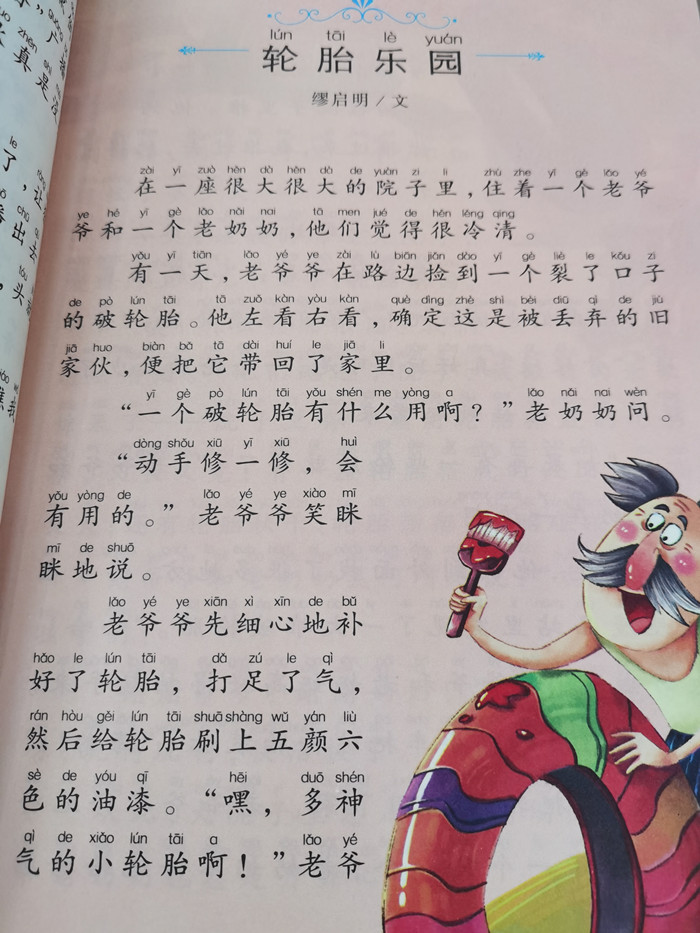 lún tāi lè yuán
轮胎乐园
缪启明/文
zài yī zuò hěn dà hěn dà de yuàn zi lǐ zhù zhe yī gè lǎo yé
在一座很大很大的院子里，住着一个老爷
ye hé yī gè lǎo nǎi nai tā men jué de hěn lěng qīng
爷和一个老奶奶，他们觉得很冷清。
yǒu yī tiān lǎo yé ye zài lù biān jiǎn dào yī gè liè le kǒu zi
有一天，老爷爷在路边捡到一个裂了口子
de pò lún tāi tā zuǒ kàn yòu kàn què dìng zhè shì bèi diū qì de jiù
的破轮胎。他左看右看，确定这是被丢弃的旧
jiā huo biàn bǎ tā dài huí le jiā lǐ
家伙，便把它带回了家里。
yī gè pò lún tāi yǒu shén me yòng a lǎo nǎi nai wèn
“一个破轮胎有什么用啊？”老奶奶问。
dòng shǒu xiū yī xiū huì
“动手修一修，会
yǒu yòng de lǎo yé ye xiào mī
有用的。”老爷爷笑眯
mī de shuō
眯地说。
lǎo yé ye xiān xì xīn de bǔ
老爷爷先细心地补
hǎo le lún tāi dǎ zú le qì
好了轮胎，打足了气，
rán hòu gěi lún tāi shuā shàng wǔ yán liù
然后给轮胎刷上五颜六
sè de yóu qī hēi duō shén
色的油漆。“嘿，多神
qì de xiǎo lún tāi a lǎo yé
气的小轮胎啊！”老爷